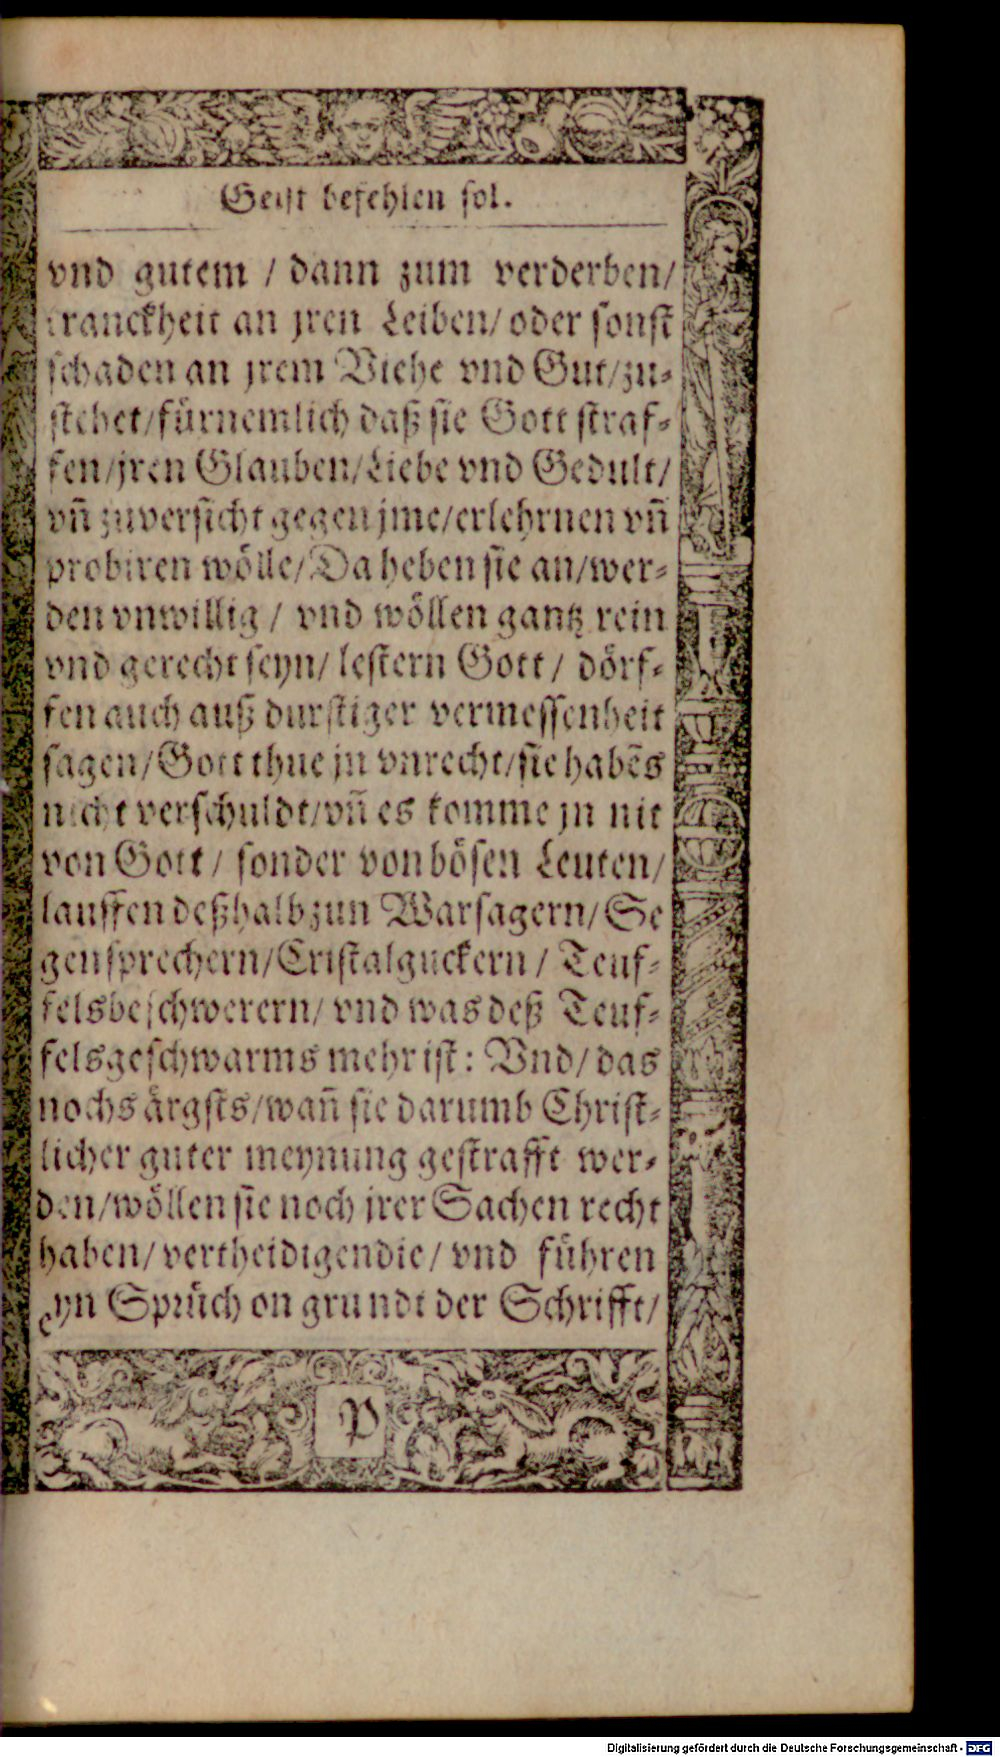 Geist befehlen sol.
vnd gutem / dann zum verderben/
kranckheit an jren Leiben/ oder sonst
schaden an jrem Viehe vnd Gut/zu-
stehet/fürnemlich daß sie Gott straf-
fen/jren Glauben/Liebe vnd Gedult/
vñ zuversicht gegen jme/erlehrnen vñ
probiren wölle/Da heben sie an/wer-
den vnwillig / vnd wöllen gantz rein
vnd gerecht seyn/ lestern Gott / dörf-
fen auch auß durstiger vermessenheit
sagen/Gott thue jn vnrecht/sie habẽs
nicht verschuldt/vñ es komme jn nit
von Gott / sonder von bösen Leuten/
lauffen deßhalb zun Warsagern/Se
gensprechern/Cristalguckern / Teuf-
felsbeschwerern/ vnd was deß Teuf-
felsgeschwarms mehr ist: Vnd/ das
nochs ärgsts/wañ sie darumb Christ-
licher guter meynung gestrafft wer-
den/wöllen sie noch jrer Sachen recht
haben/ vertheidigen die/ vnd führen
eyn Sprüch on grundt der Schrifft/
P
Digitalisierung gefördert durch die Deutsche Forschungsgemeinschaft - DFG